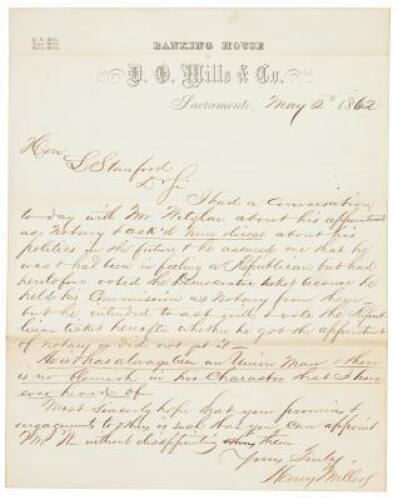 BANKING HOUSE
D. O. Mills & Co.
Sacramento, May 2d 1862
Hon L Stanford
Dr Sir
I had a conversation
to day with Mr Wetzlar about his appointment
as Notary & ask'd him direct about his
politics in the future & he assured me that he
was & had been in feeling a Republican but had
heretofore voted the Democratic ticket because he
held his Commission as Notary from them
but he intended to act with & vote the Repub
lican ticket hereafter whether he got the appointment
of notary or did not get it —
He has always been an Union Man & there
is no blemish in his Character that I have
ever heard of
Most sincerely hope that your promises &
engagements to others is such that you can appoint
Mr W without disappointing them
Yours Truly,
Henry Miller